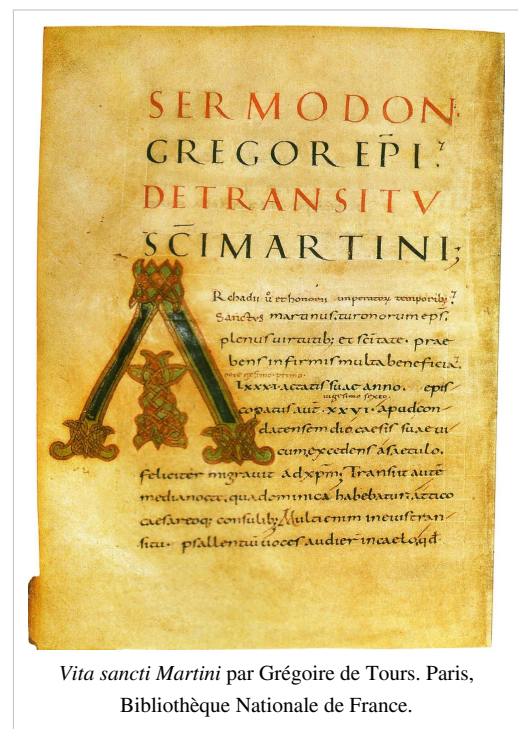 SERMO DON
GREGOR EP̄I.
DE TRANSITV
SC̄I MARTINI;
Rchadii ů et honorii imperatorū temporib;
Sanctus martinus turonorum eps.
plenus uirtutib; et sc̄itate. prae
bens infirmis multa beneficia.
octogesimo primo
LXXXI. aetatis suae anno. epis
uigesimo sexto.
copatus aut̄. XXVI. apud con
datensem dioceseos suae ui
cum, excedens a saeculo.
feliciter migrauit ad xp̄m; Transiit autē
media nocte, qua dominica habebatur, attico
caesareoq; consulib; Multi enim in eius tran-
situ. psallentiū uoces audier̄ in caelo, qđ
Vita sancti Martini par Grégoire de Tours. Paris,
Bibliothèque Nationale de France.